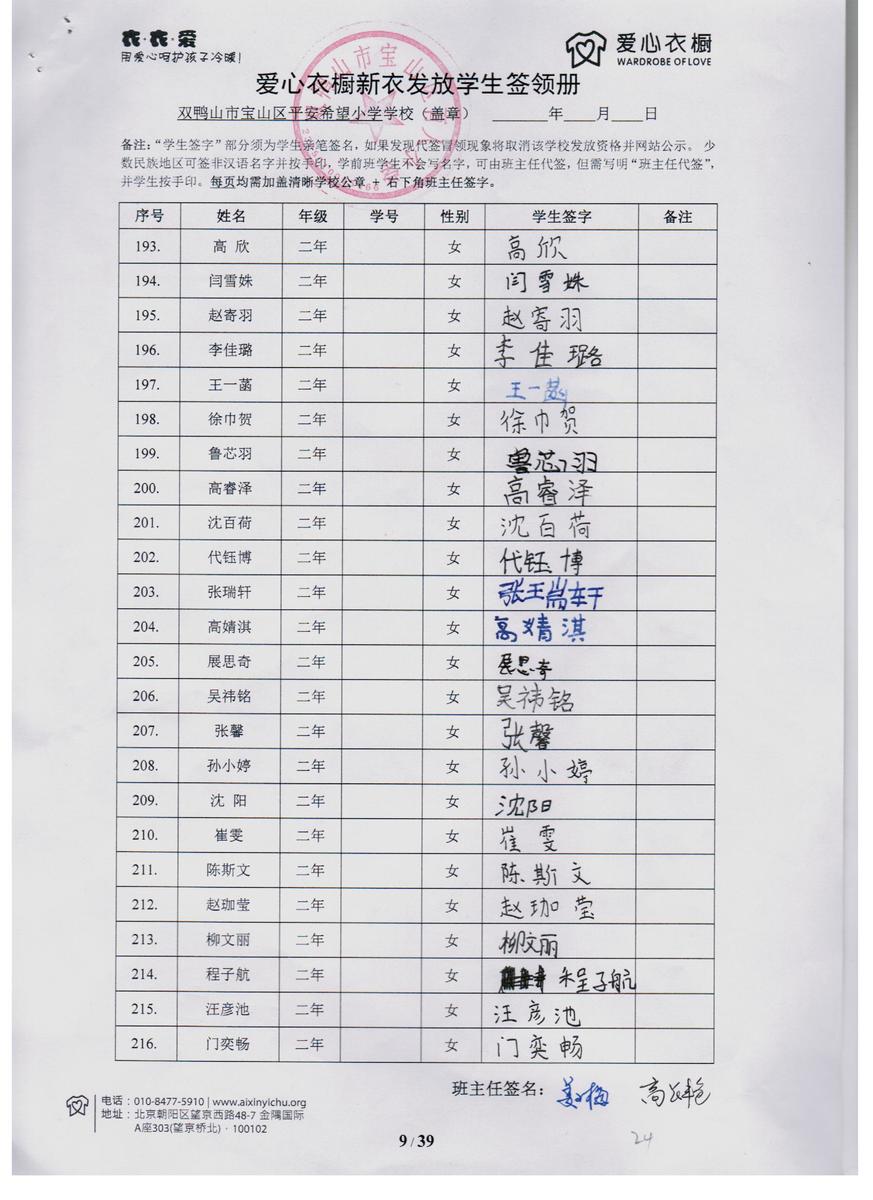 衣·衣·爱
用爱心呵护孩子冷暖!
爱心衣橱
WARDROBE OF LOVE
爱心衣橱新衣发放学生签领册
双鸭山市宝山区平安希望小学学校（盖章） ______年____月____日
备注：“学生签字”部分须为学生亲笔签名，如果发现代签冒领现象将取消该学校发放资格并网站公示。 少
数民族地区可签非汉语名字并按手印，学前班学生不会写名字，可由班主任代签，但需写明“班主任代签”，
并学生按手印。每页均需加盖清晰学校公章 + 右下角班主任签字。
序号 姓名 年级 学号 性别 学生签字 备注
193. 高 欣 二年 女 高欣
194. 闫雪姝 二年 女 闫雪姝
195. 赵寄羽 二年 女 赵寄羽
196. 李佳璐 二年 女 李佳璐
197. 王一菡 二年 女 王一菡
198. 徐巾贺 二年 女 徐巾贺
199. 鲁芯羽 二年 女 鲁芯羽
200. 高睿泽 二年 女 高睿泽
201. 沈百荷 二年 女 沈百荷
202. 代钰博 二年 女 代钰博
203. 张瑞轩 二年 女 张瑞轩
204. 高婧淇 二年 女 高婧淇
205. 展思奇 二年 女 展思奇
206. 吴祎铭 二年 女 吴祎铭
207. 张馨 二年 女 张馨
208. 孙小婷 二年 女 孙小婷
209. 沈 阳 二年 女 沈阳
210. 崔雯 二年 女 崔雯
211. 陈斯文 二年 女 陈斯文
212. 赵珈莹 二年 女 赵珈莹
213. 柳文丽 二年 女 柳文丽
214. 程子航 二年 女 程子航
215. 汪彦池 二年 女 汪彦池
216. 门奕畅 二年 女 门奕畅
班主任签名：
电话：010-8477-5910 | www.aixinyichu.org
地址：北京朝阳区望京西路48-7 金隅国际
A座303(望京桥北)·100102
9 / 39
24